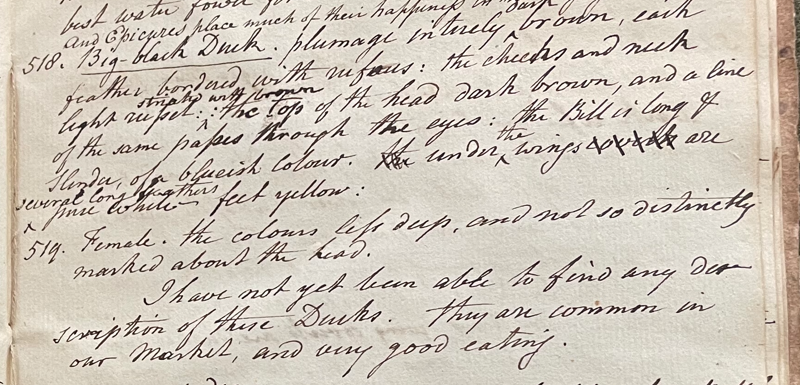 best water fowl
and Epicures place much of their happiness in
518. Big-black Duck. plumage intirely ^ dark brown, each
feather bordered with rufous: the cheeks and neck
light rufset: ^ streakd with brown the top of the head dark brown, and a line
of the same paſses through the eyes: the Bill is long &
slender, of a blueish colour. under ^ the wings are
^ several long feathers pure white feet yellow:
519. Female. the colours leſs deep, and not so distinctly
marked about the head.
I have not yet been able to find any de
scription of these Ducks. they are common in
our Market, and very good eating.